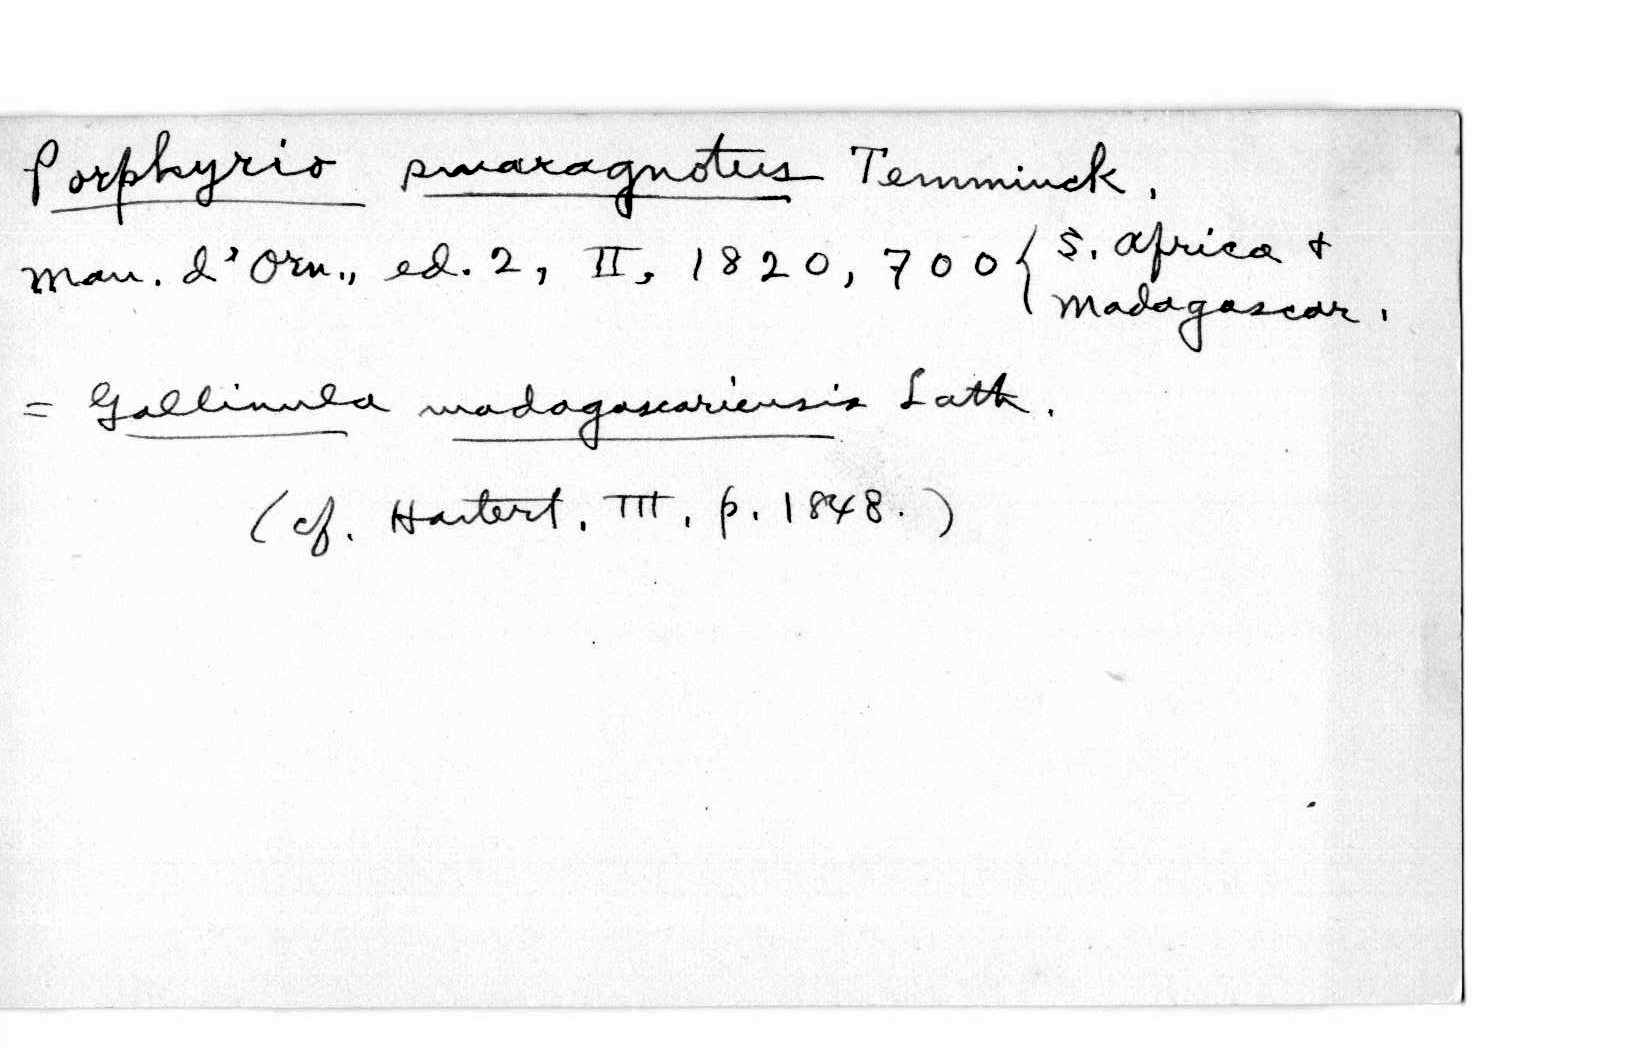 Porphyrio smaragnotus Temminck.
Man. d'Orn., ed. 2, II, 1820, 700 { S. Africa & Madagascar.
= Gallinula madagascariensis Lath.
(cf. Hartert, III, p. 1848.)